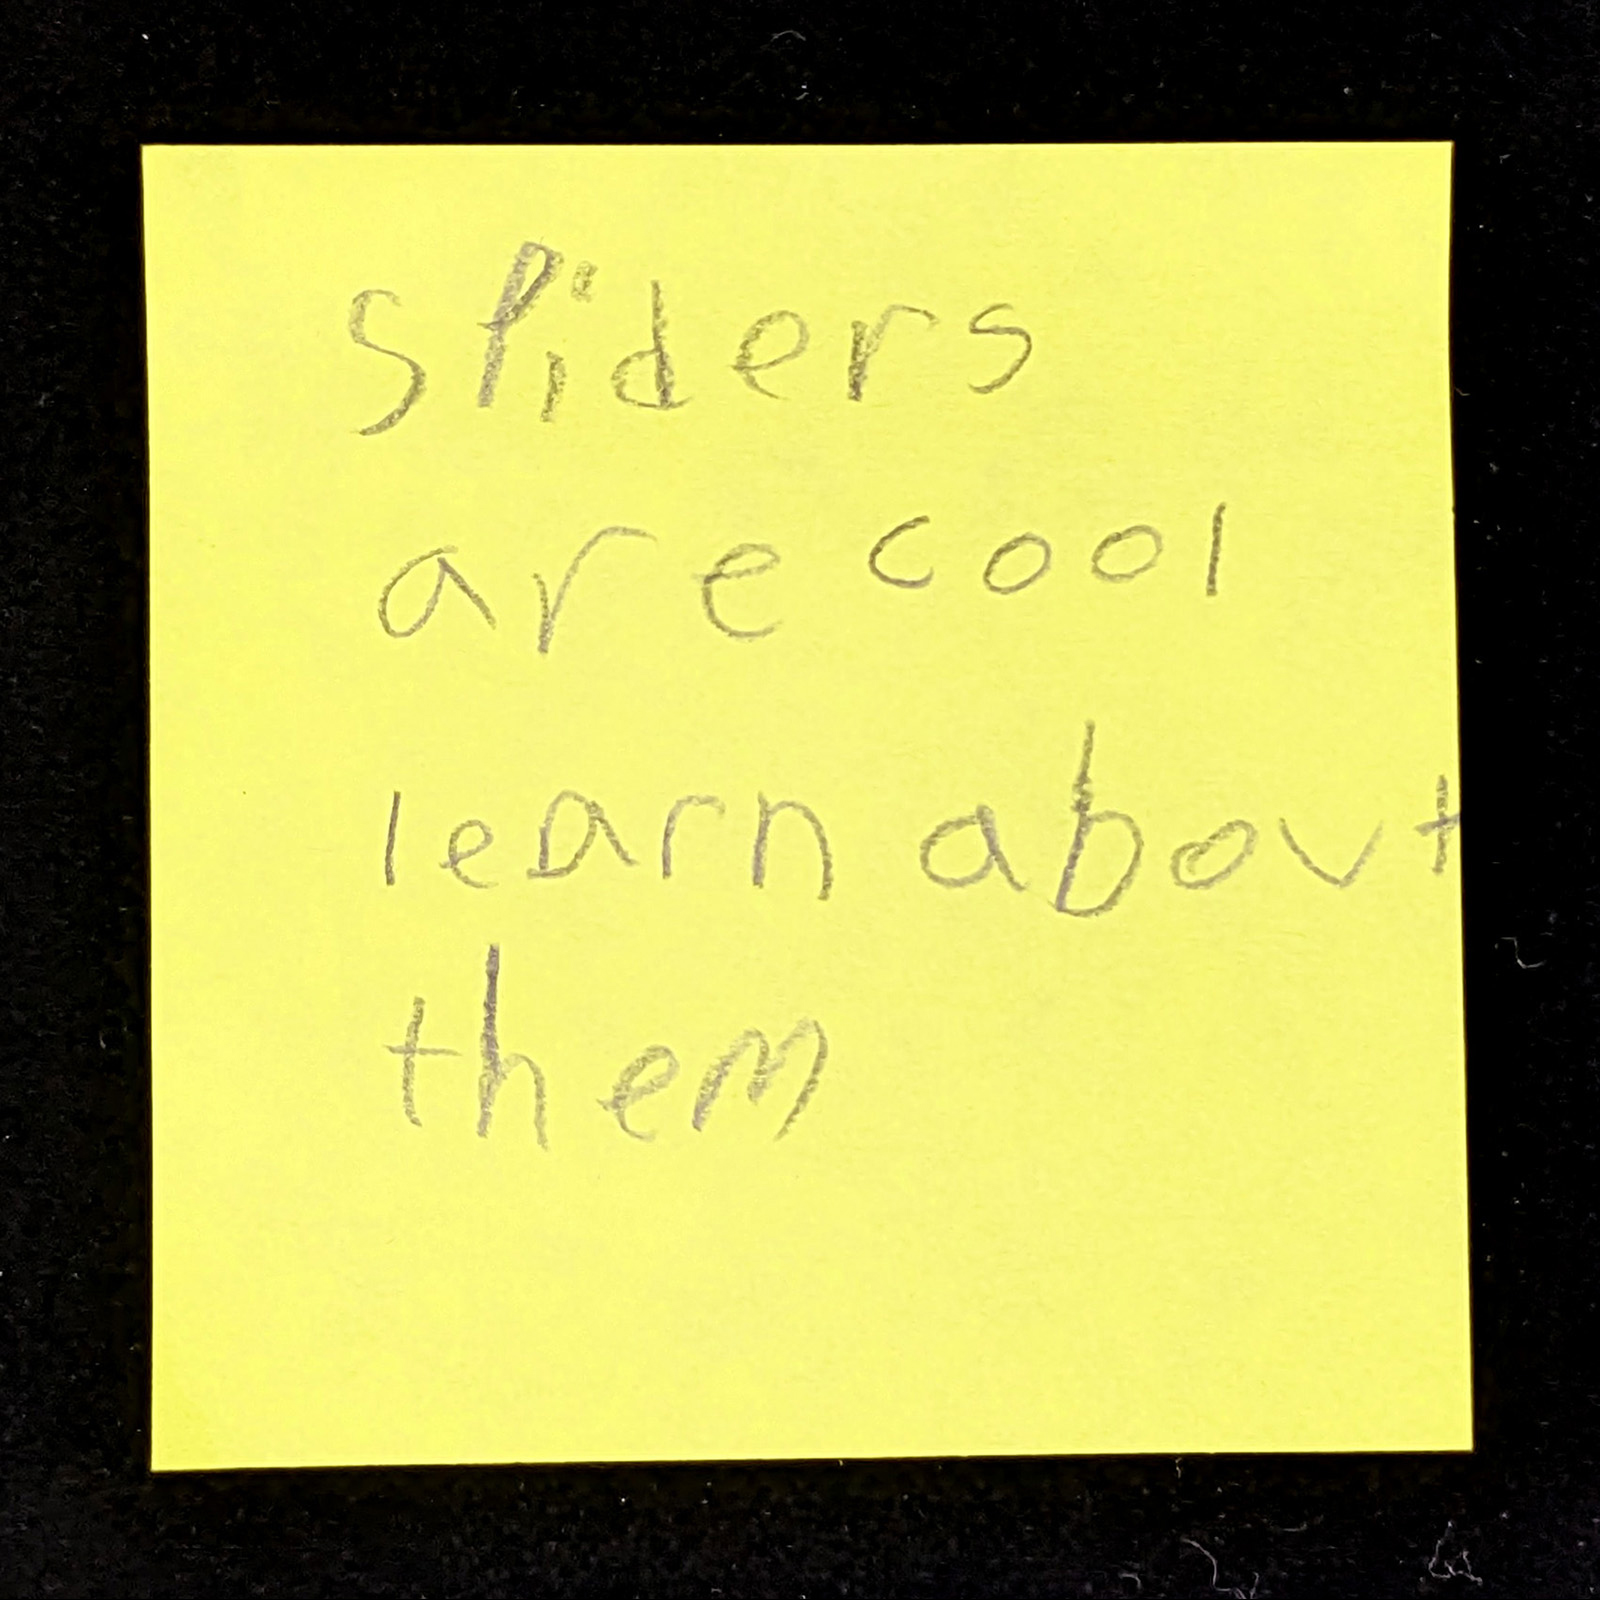 spiders
are cool
learn about
them